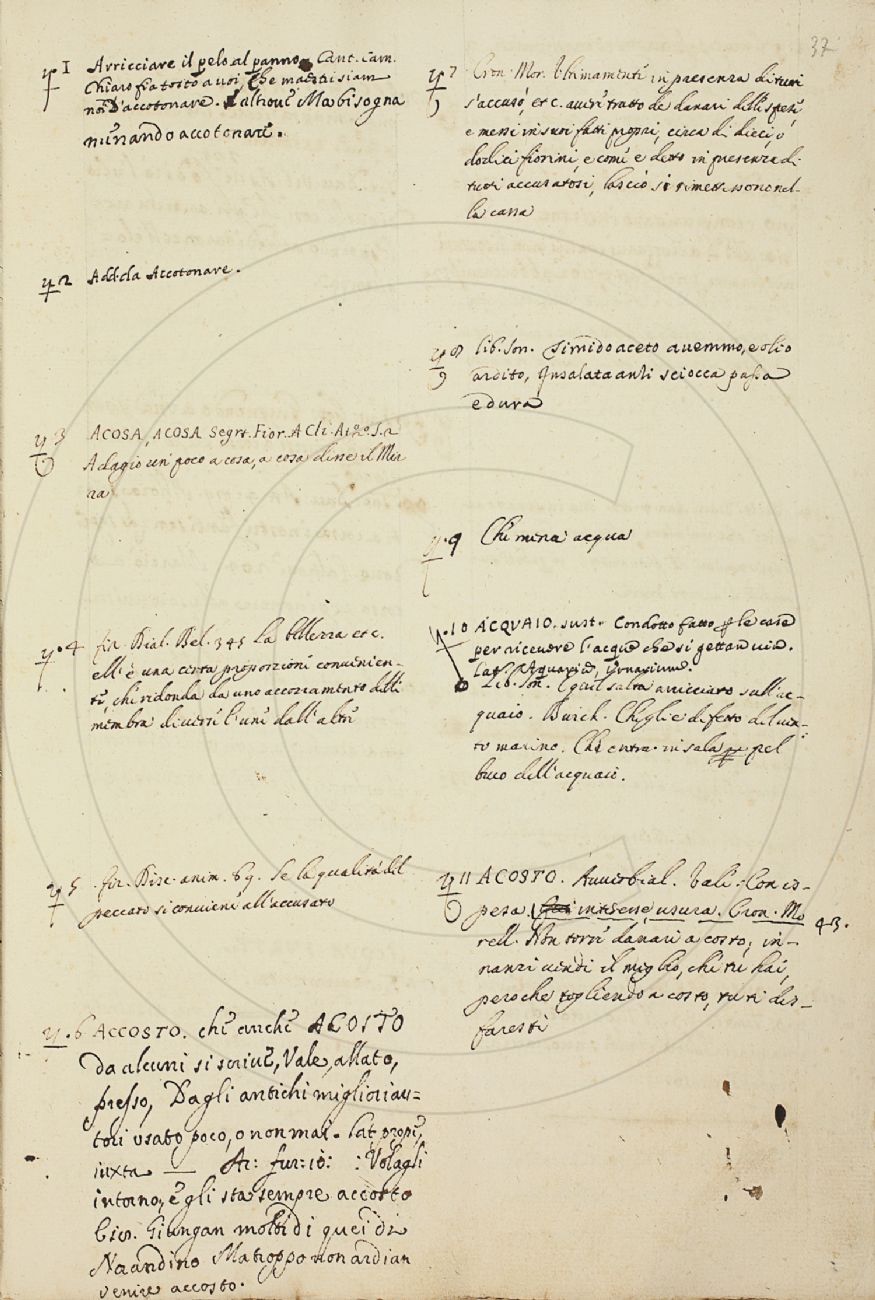 37
1 Arricciare il pelo al panno. Cant. Carn.
Chiaro fia tosto a voi, Che maestri siam
noi D'accotonare. E altrove Ma bisogna
menando accotonare.
2 Add. da Accotonare.
3 ACOSA, ACOSA Segr. Fior. A Cli. At.
Adagio un poco a cosa, a cosa disse il Mer
4 fir. Dial. Bel. 345 La bellezza etc.
ell'è una certa proporzione convenien-
te, che ridonda da uno accozzamento delle
membra diverse l'une dall'altre
5 fir. Disc. anim. 69. Se la qualità del
peccato si conviene all'accusato
6 ACCOSTO. che anche ACOSTO
da alcuni si scrive, Vale, allato,
presso, Dagli antichi migliori au-
tori usato poco, o non mai. Lat. prope,
iuxta — Ar: fur: 10: : Volagli
intorno, e gli sta sempre accosto
Giungan molti di quei di
Naandino Ma troppo non ardian
venire accosto.
7 Cron. Mor. Ultimamente in presenza di tutti
s'accusò, etc. avere tratto de danari delle spese
e messi in suoi fatti propri, circa di dieci, o
dodici fiorini, e come è detto in presenza di
tutti accusatosi, lasciò si rimettessono nel-
la cassa
8 lib. son. Si mido aceto avemmo, e olio
ardito, Insalata anli sciocca passa
e dura
9 Chi mena acqua
10 ACQUAIO. sust. Condotto fatto p le case
per ricevere l'acque che si gettan via.
Lat. Aquarium,
Lib. Son. salta arricciato sull'ac-
quaio. Burch. Che gli è difetto del ven-
to marino. Che entra in sala pel
buco dell'acquaio.
11 ACOSTO. Avverbial. Vale: Con is-
pesa, interesse, usura. Cron. Mo
rell. Non torre danari a costo, in- 43.
nanzi vendi il meglio, che tu hai,
peroche togliendo a costo, tu ti dis-
faresti